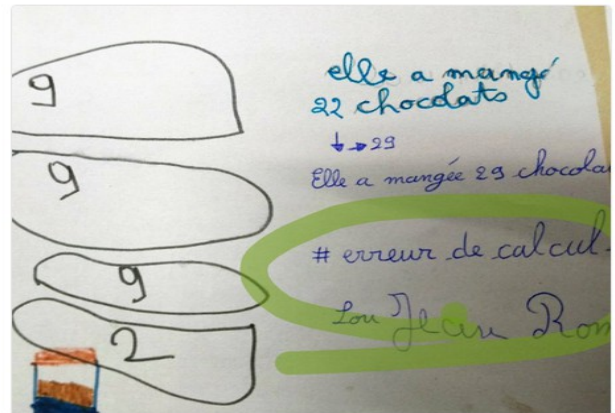 9
9
9
2
elle a mangé
22 chocolats
↓→29
Elle a mangée 29 chocola
# erreur de calcul.
Lou Jean Rom